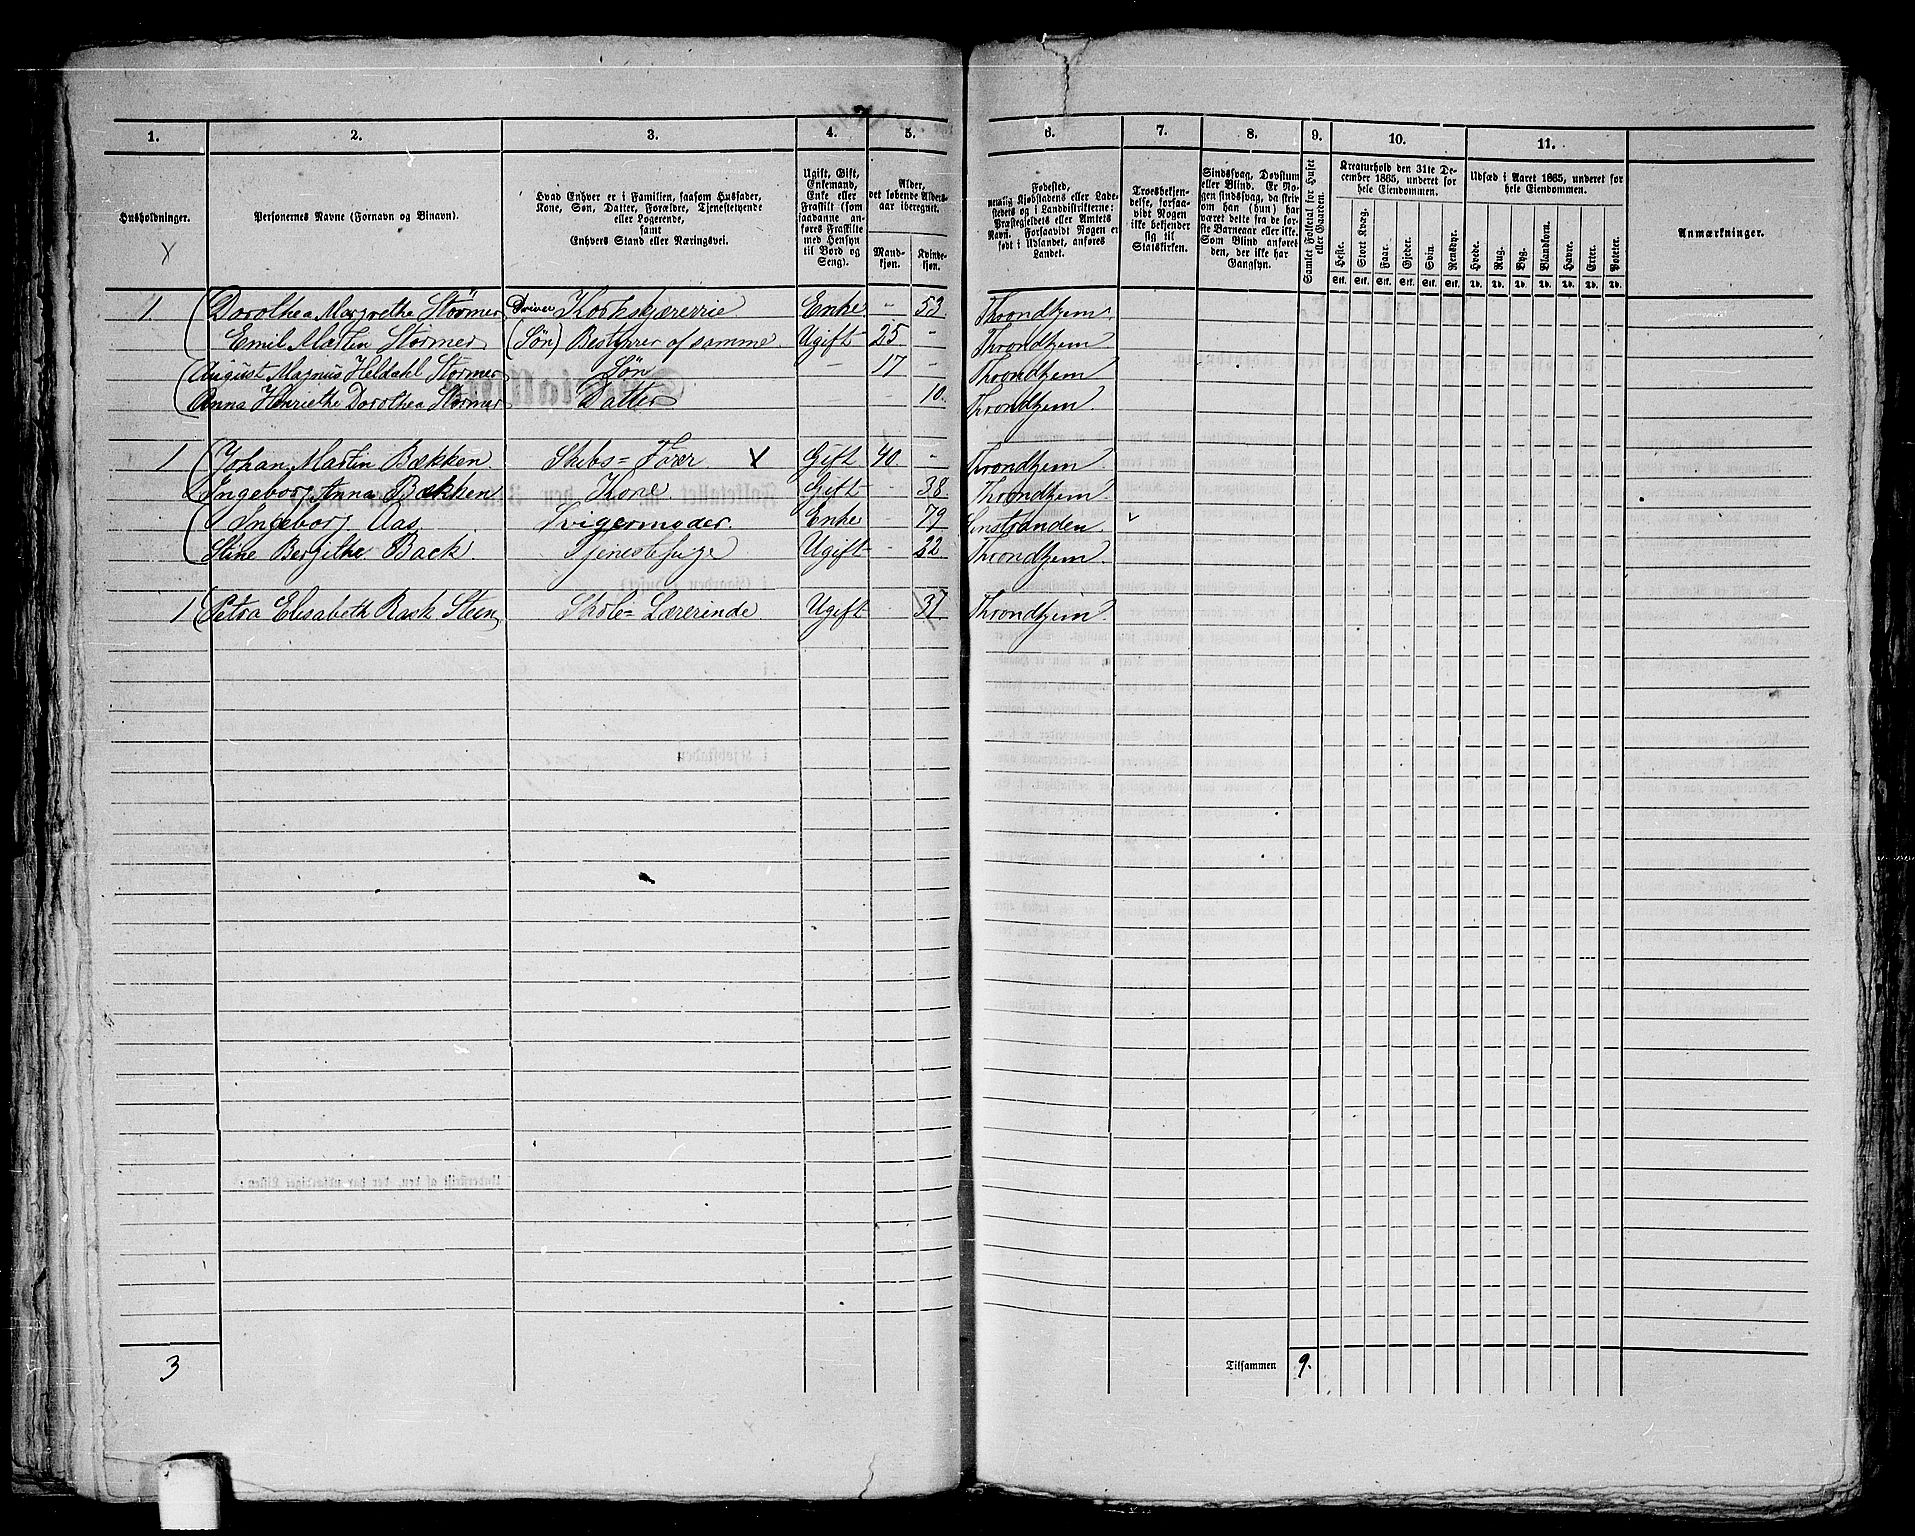 1. 2. 3. 4. 5. 6. 7. 8. 9. 10. 11.
Husholdninger.
Personernes Navne (Fornavn og Binavn).
Hvad Enhver er i Familien, saasom Husfader,
Kone, Søn, Datter, Forældre, Tjenestetyende
eller Logerende,
samt
Enhvers Stand eller Næringsvei.
Ugift, Gift,
Enkemand,
Enke eller
Fraskilt (som
saadanne an-
føres Fraskilte
med Hensyn
til Bord og
Seng).
Alder,
det løbende Alders-
aar iberegnet.
Mand-
kjøn.
Kvinde-
kjøn.
Fødested,
nemlig Kjøbstadens eller Lade-
stedets og i Landdistrikterne:
Præstegjeldets eller Amtets
Navn. Forsaavidt Nogen er
født i Udlandet, anføres
Landet.
Troesbekjen-
delse, forsaa-
vidt Nogen
ikke bekjender
sig til
Statskirken.
Sindssvag, Døvstum
eller Blind. Er No-
gen sindssvag, da skriv
om han (hun) har
været dette fra de før-
ste Barneaar eller ikke.
Som Blind anføres
den, der ikke har
Gangsyn.
Samlet Folketal for Huset
eller Gaarden.
Kreaturhold den 31te De-
cember 1865, underet for
hele Eiendommen.
Heste. Stort Kvæg. Faar. Gjeder. Svin. Rensdyr.
Stk. Stk. Stk. Stk. Stk. Stk.
Udsæd i Aaret 1865, underet for
hele Eiendommen.
Hvede. Rug. Byg. Blandkorn. Havre. Erter. Poteter.
Td. Td. Td. Td. Td. Td. Td.
Anmærkninger.
1 Dorothea Margrethe Störmer Driver Korkskjærerie Enke - 53 Throndhjem.
Emil Martin Störmer (Søn) Bestyrer af samme. Ugift 25 - Throndhjem.
August Magnus Heldahl Störmer Søn - 17 - Throndhjem
Anna Henriethe Dorothea Störmer Datter - - 10. Throndhjem.
1 Johan Martin Bækken. Skibs= Fører X Gift 40. - Throndhjem
Ingeborg Anna Bækken Kone Gift - 38 Throndhjem.
Ingeborg Aas. Svigermoder. Enke - 79
Stine Bergithe Back. Tjenestepige Ugift - 22 Throndhjem.
1 Petra Elisabeth Back Steen Skole= Lærerinde Ugift - 37 Throndhjem.
3
Tilsammen 9.